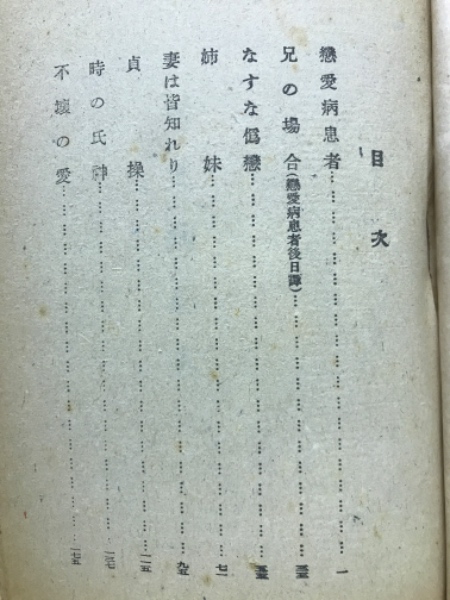 目次
戀愛病患者……一
兄の場合(戀愛病患者後日譚)……
なすな僞戀……
姉妹……七一
妻は皆知れり……九五
貞操……一一五
時の氏神……
不壞の愛……一七五